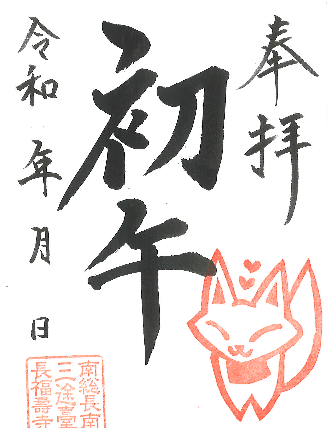 奉拝
初午
令和 年 月 日
南総長南
三途臺
長福壽寺